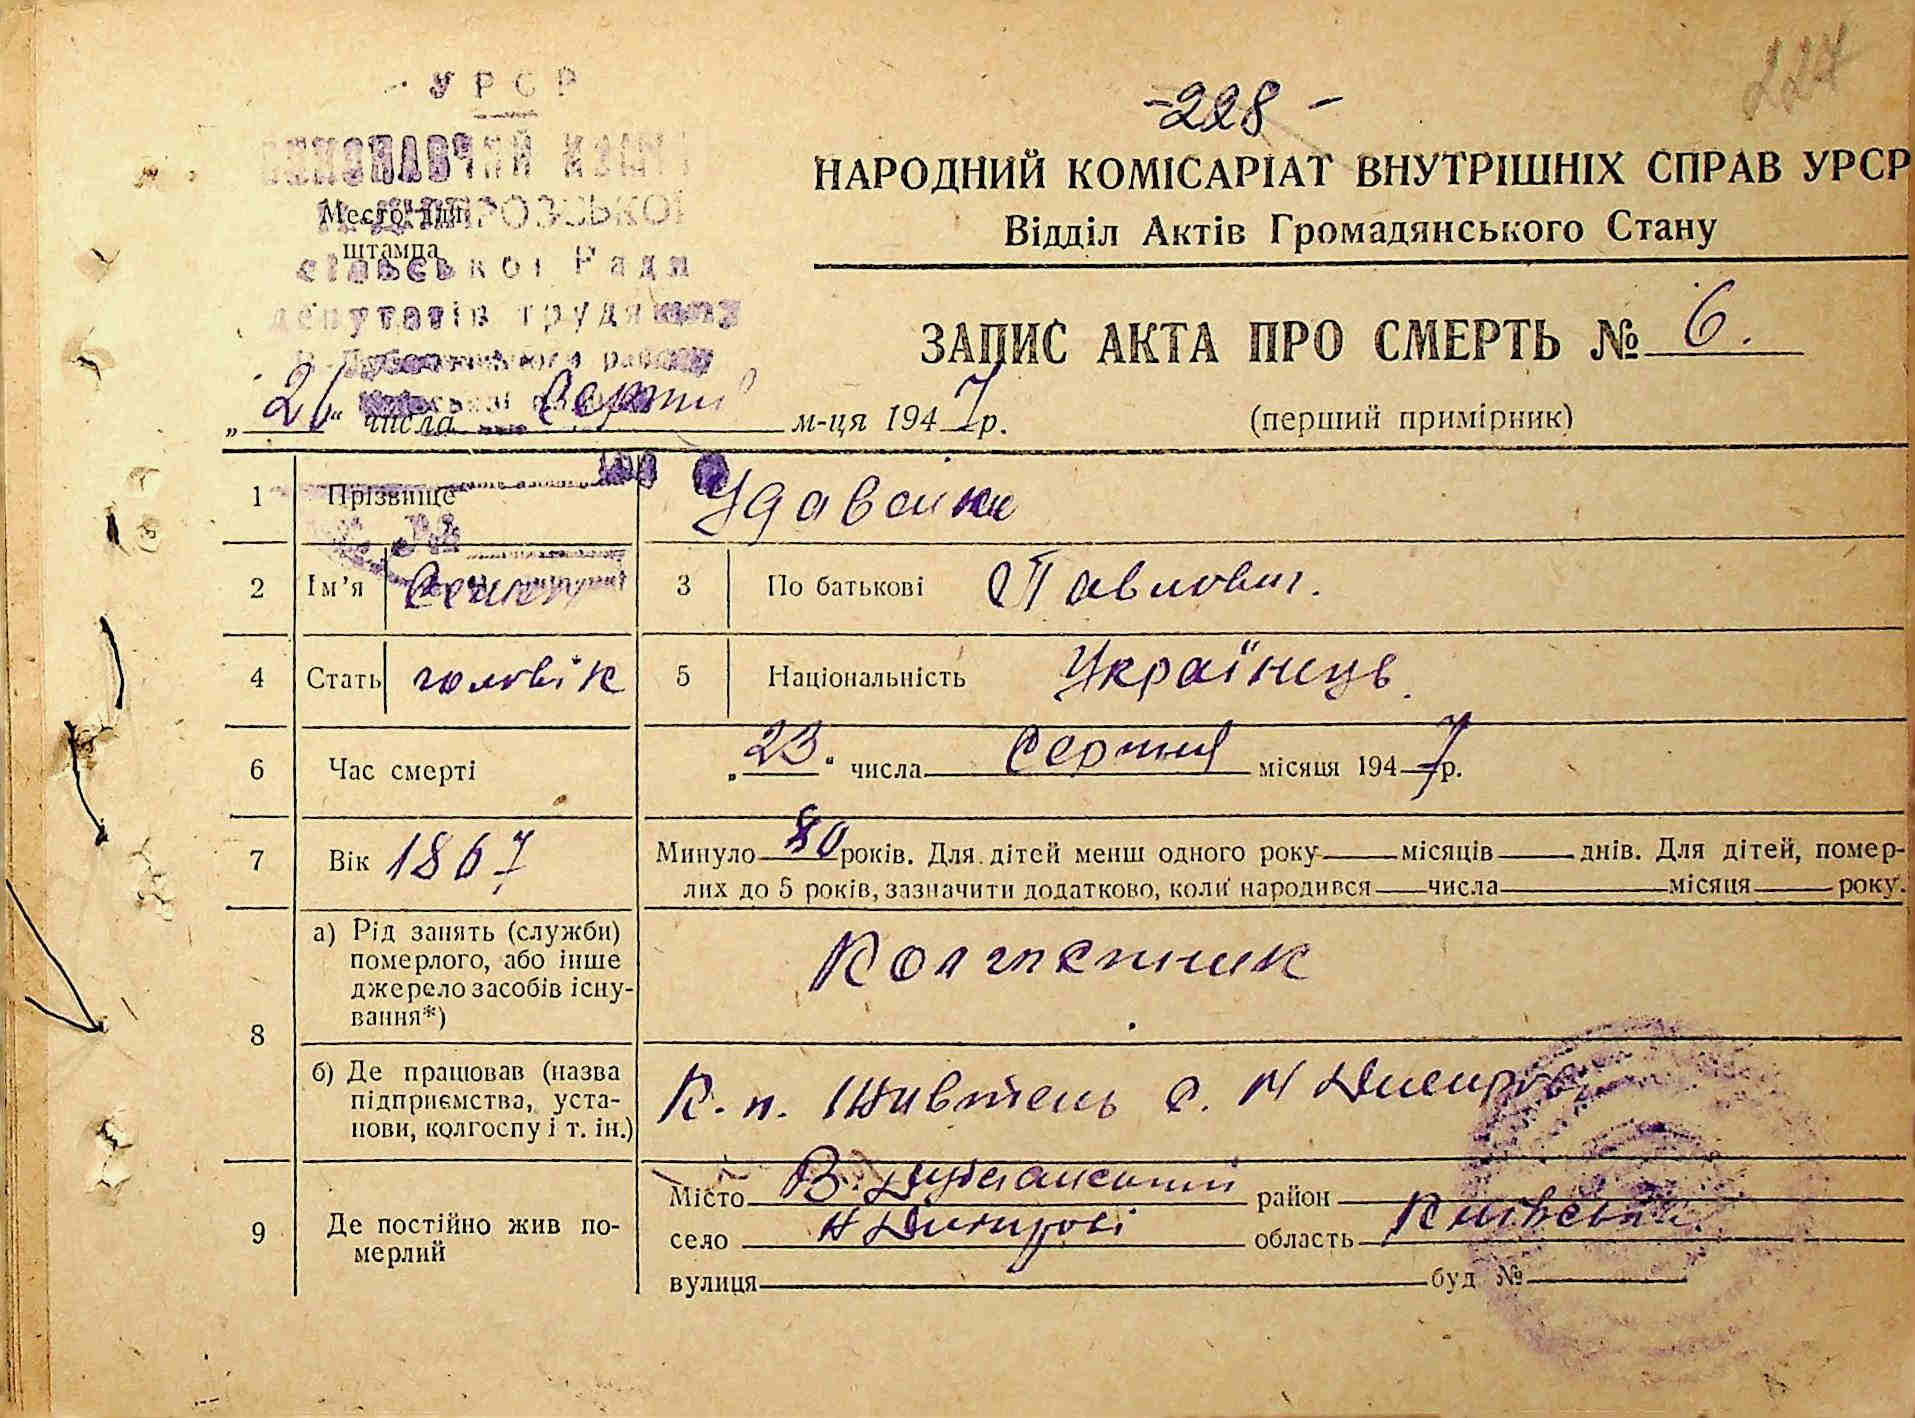 227
-228-
УРСР
ВИКОНАВЧИЙ КОМІТ
НАРОДНИЙ КОМІСАРІАТ ВНУТРІШНІХ СПРАВ УРСР
Место для
штампа
Відділ Актів Громадянського Стану
сільської Ради
депутатів трудящих
ЗАПИС АКТА ПРО СМЕРТЬ № 6.
числа серпня м-ця 1947 р.
(перший примірник)
1 Прізвище
2 Ім'я 3 По батькові Павлович.
4 Стать чоловік 5 Національність Українець.
6 Час смерті „23" числа серпня місяця 1947 р.
7 Вік 1867 Минуло 80 років. Для дітей менш одного року місяців днів. Для дітей, помер-
лих до 5 років, зазначити додатково, коли народився числа місяця року.
8 а) Рід занять (служби)
померлого, або інше
джерело засобів існу-
вання*)
Колгоспник
б) Де працював (назва
підприємства, уста-
нови, колгоспу і т. ін.)
К-п. с. Н
9 Де постійно жив по-
мерлий
Місто район
село область Київська
вулиця буд №